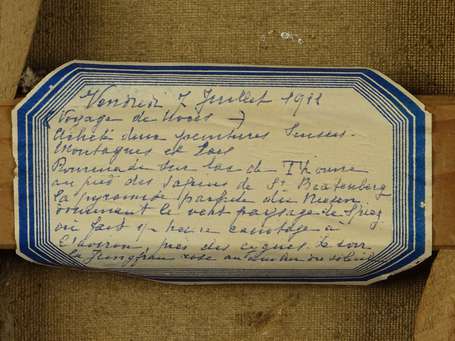 Vendredi 7 Juillet 1911
(Voyage de Noces)
Acheté deux peintures Suisses.
Montagnes et Lacs
Promenade sur lac de Thoune
au pied des Sapins de St Beatenberg
la pyramide parfaite du Niesen
dominant le vert paysage de Spiez
on fait 1/2 heure canotage à
près des cygnes. Le soir
la Jungfrau rose au coucher du soleil